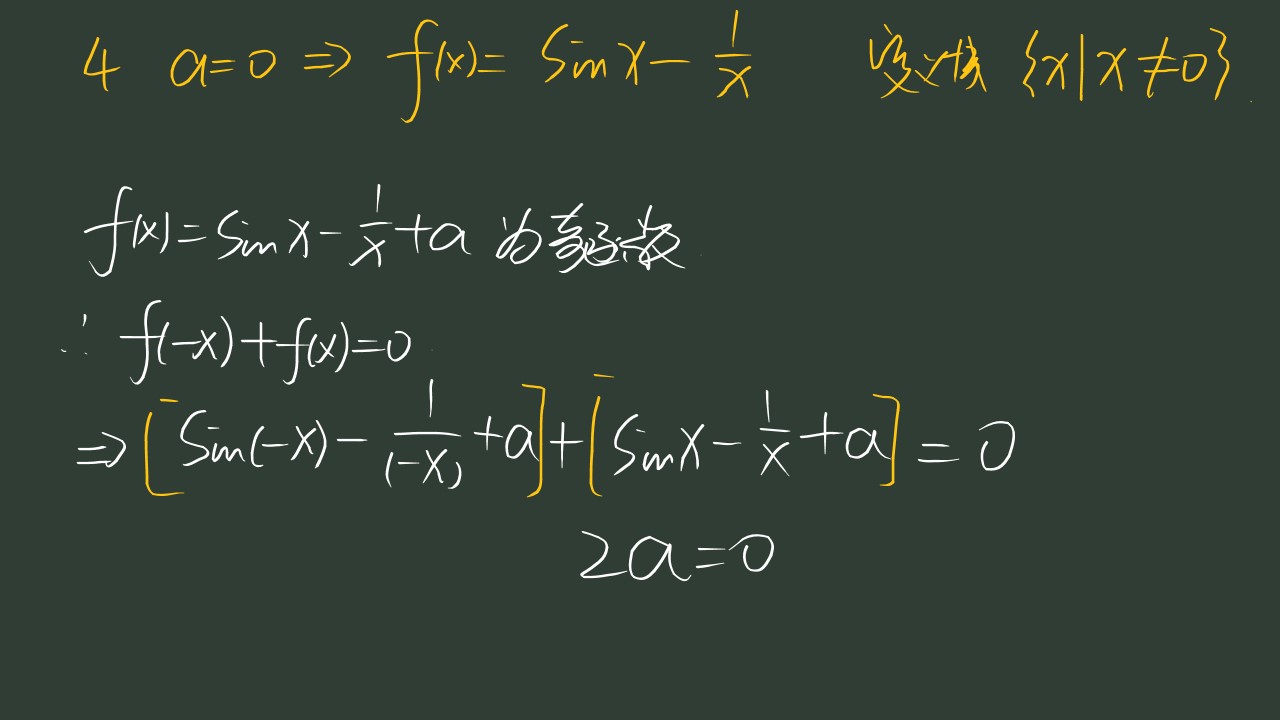 4 a=0 ⇒ f(x)= sinx - 1/x 定义域 {x|x≠0}
f(x)=sinx - 1/x + a 为奇函数
∴ f(-x)+f(x)=0
⇒ [sin(-x) - 1/(-x) + a] + [sinx - 1/x + a] = 0
2a=0